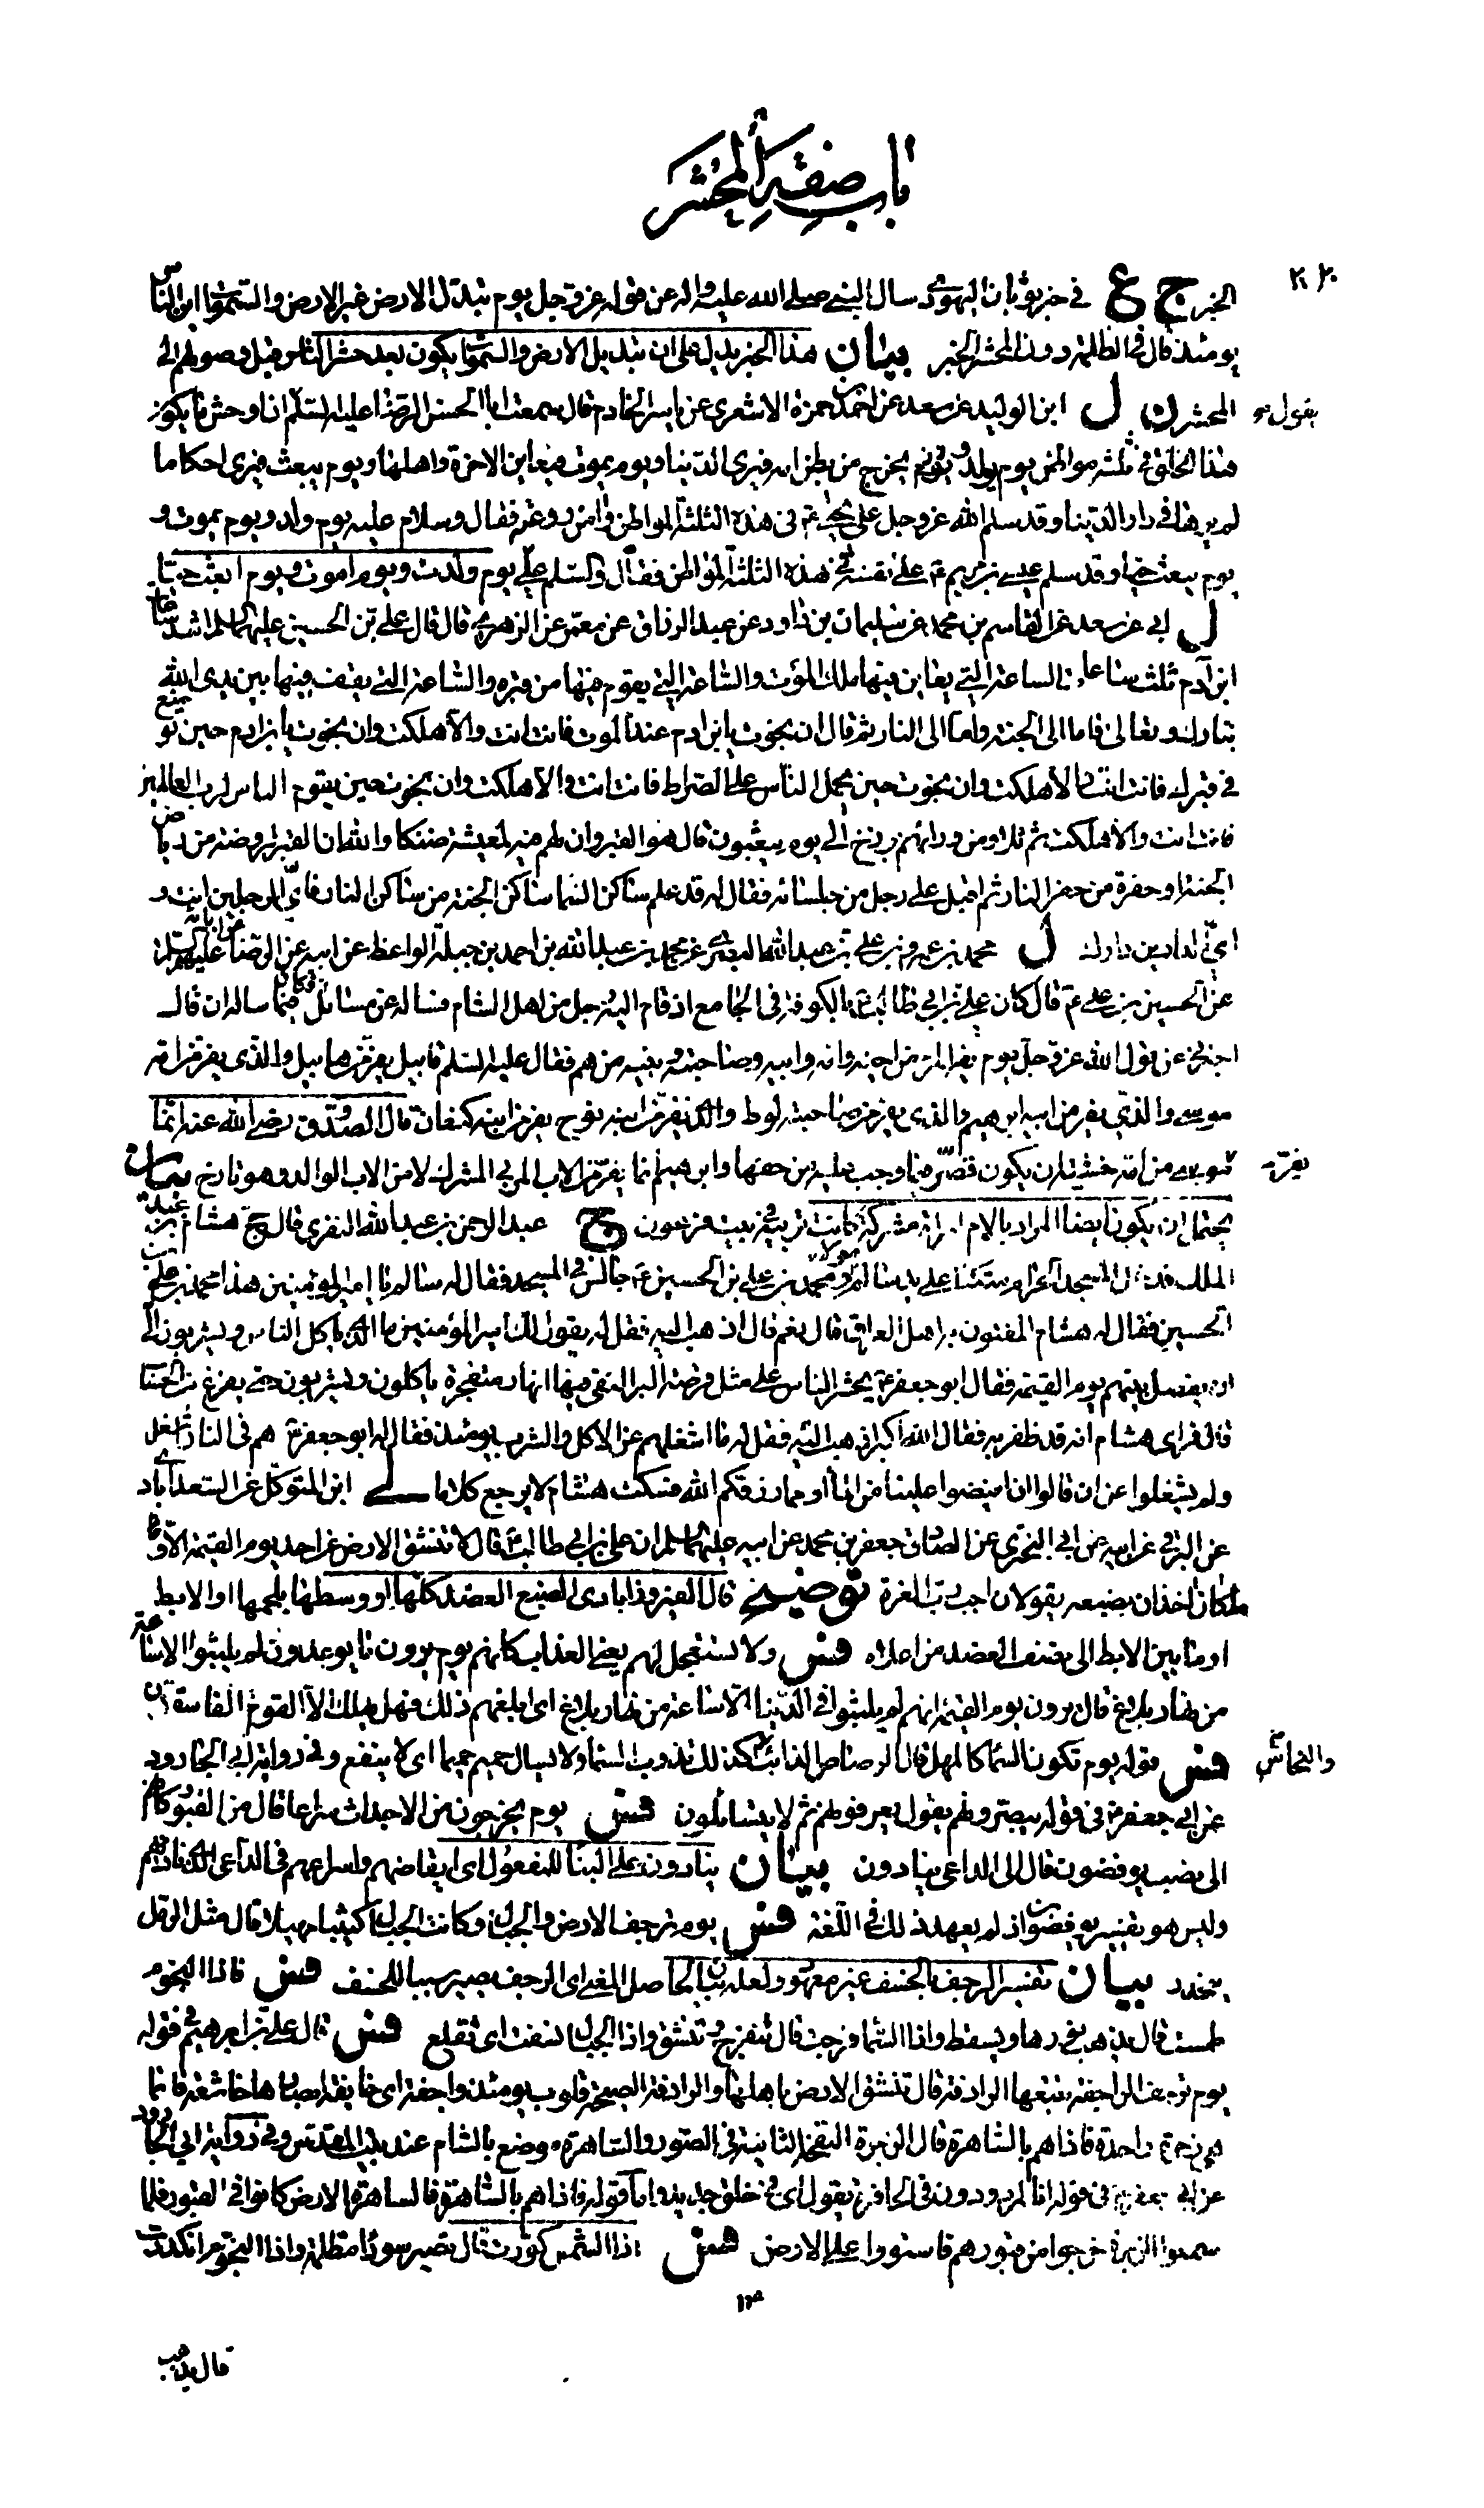 باب صفة المحشر
٢٢٠
الخبر ج ع في خبر ثوبان اليهودي سال النبي صلى الله عليه واله عن قوله عزوجل يوم تبدل الارض غير الارض والسموات اين الناس
يومئذ قال في الظلمة دون المحشر الخبر بيان هذا الخبر يدل على ان تبديل الارض والسموات يكون بعد حشر الناس قبل وصولهم الى
المحشر ن ل ابن الوليد عن سعد عن احمد بن حمزة الاشعري عن ياسر الخادم قال سمعت ابا الحسن الرضا عليه السلام ان اوحش ما يكون
يقول
هذا الخلق في ثلثة مواطن يوم يولد ويخرج من بطن امه فيرى الدنيا ويوم يموت فيعاين الاخرة واهلها ويوم يبعث فيرى احكاما
لم يرها في دار الدنيا وقد سلم الله عزوجل على يحيى ع في هذه الثلثة المواطن وامن روعته فقال وسلام عليه يوم ولد ويوم يموت و
يوم يبعث حيا وقد سلم عيسى بن مريم ع على نفسه في هذه الثلثة المواطن فقال والسلم علي يوم ولدت ويوم اموت ويوم ابعث حيا
ل ابي عن سعد عن القاسم بن محمد عن سليمان بن داود عن عبد الرزاق عن معمر عن الزهري قال قال علي بن الحسين عليهما السلم اشد ساعات
ابن آدم ثلث ساعات الساعة التي يعاين فيها ملك الموت والساعة التي يقوم فيها من قبره والساعة التي يقف فيها بين يدي الله
تبارك وتعالى فاما الى الجنة واما الى النار ثم قال ان نجوت يا بن ادم عند الموت فانت انت والا هلكت وان نجوت يا بن ادم حين توضع
في قبرك فانت انت والا هلكت وان نجوت حين يحمل الناس على الصراط فانت انت والا هلكت وان نجوت حين يقوم الناس لرب العالمين
فانت انت والا هلكت ثم تلا ومن ورائهم برزخ الى يوم يبعثون قال هو القبر وان لهم فيه لمعيشة ضنكا والله ان القبر لروضة من رياض
الجنة او حفرة من حفر النار ثم اقبل على رجل من جلسائه فقال له قد علم ساكن السما ساكن الجنة من ساكن النار فاي الرجلين انت و
اي الدارين دارك ل محمد بن عمرو بن علي بن عبد الله البصري عن محمد بن عبد الله بن احمد بن جبلة الواعظ عن ابيه عن الرضا عن ابائه عليهم السلم
عن الحسين بن علي ع قال كان علي بن ابي طالب ع بالكوفة في الجامع اذ قام اليه رجل من اهل الشام فساله عن مسائل فكان فيما ساله ان قال
اخبرني عن قول الله عزوجل يوم يفر المرء من اخيه وامه وابيه وصاحبته وبنيه من هم فقال عليه السلم قابيل يفر من هابيل والذي يفر من امه
موسى والذي يفر من ابيه ابرهيم والذي يفر من صاحبته لوط والذي يفر من ابنه نوح يفر من ابنه كنعان قال الصدوق رضي الله عنه انما
يفر
موسى من امه خشية ان يكون قصر فيما وجب عليه من حقها وابرهيم انما يفر من الاب المربي المشرك لا من الاب الوالد وهو تارخ بيان
يحتمل ان يكون ايضا المراد بالام امراة مشركة كانت تربيه في بيت فرعون ج عبد الرحمن بن عبد الله الزهري قال حج هشام بن عبد
الملك فدخل المسجد الحرام متكئا على يد سالم مولاه ومحمد بن علي بن الحسين ع جالس في المسجد فقال له سالم يا امير المؤمنين هذا محمد بن علي بن
الحسين فقال له هشام المفتون به اهل العراق قال نعم قال اذهب اليه فقل له يقول لك امير المؤمنين ما الذي ياكل الناس ويشربون الى
ان يفصل بينهم يوم القيمة فقال ابو جعفر ع يحشر الناس على مثل قرصة البر النقي فيها انهار متفجرة ياكلون ويشربون حتى يفرغ من الحساب
قال فراى هشام انه قد ظفر به فقال الله اكبر اذهب اليه فقل له ما اشغلهم عن الاكل والشرب يومئذ فقال له ابو جعفر ع هم في النار اشغل
ولم يشغلوا عن ان قالوا ان افيضوا علينا من الماء او مما رزقكم الله فسكت هشام لا يرجع كلاما لى ابن المتوكل عن السعدآبادي
عن البرقي عن ابيه عن ابي البختري عن الصادق جعفر بن محمد عن ابيه عليهما السلم ان علي بن ابي طالب ع قال لا تنشق الارض عن احد يوم القيمة الا وملكان
اخذان بضبعه يقولان اجب رب العزة توضيح قال الفيروزابادي الضبع العضد كلها او وسطها بلحمها او الابط
او ما بين الابط الى نصف العضد من اعلاه فس ولا تستعجل لهم يعني العذاب كانهم يوم يرون ما يوعدون لم يلبثوا الا ساعة
من نهار بلاغ قال يرون يوم القيمة انهم لم يلبثوا في الدنيا الا ساعة من نهار بلاغ اي ابلغهم ذلك فهل يهلك الا القوم الفاسقون
فس قوله يوم تكون السما كالمهل قال الرصاص الذائب كذلك تذوب السما ولا يسال حميم حميما اي لا ينفع وفي رواية ابي الجارود
والنحاس
عن ابي جعفر ع في قوله يبصرونهم يقول يعرفونهم ثم لا يتسائلون فس يوم يخرجون من الاجداث سراعا قال من القبور كانهم
الى نصب يوفضون قال الى الداعي ينادون بيان ينادون على البنا للمفعول اي
وليس هو تفسير يوفضون اذ لم يعهد ذلك في اللغة فس يوم ترجف الارض والجبال وكانت الجبال كثيبا مهيلا قال مثل الرمل
ينحدر بيان تفسير الرجف بالخسف غير معهود ولعله بيان لحاصل المعنى اي الرجف يصير سببا للخسف فس فاذا النجوم
طمست قال يذهب نورها ويسقط واذا السما فرجت قال تنفرج وتنشق واذا الجبال نسفت اي تقلع فس قال علي بن ابرهيم في قوله
يوم ترجف الراجفة تتبعها الرادفة قال تنشق الارض باهلها والرادفة الصيحة قلوب يومئذ واجفة اي خائفة ابصارها خاشعة فانما
هي زجرة واحدة فاذا هم بالساهرة قال الزجرة النفخة الثانية في الصور والساهرة موضع بالشام عند بيت المقدس وفي رواية ابي الجارود
عن ابي جعفر ع في قوله ائنا لمردودون في الحافرة يقول اي في خلق جديد واما قوله فاذا هم بالساهرة فالساهرة الارض كانوا في القبور فلما
سمعوا الزجرة خرجوا من قبورهم فاستووا على الارض فس اذا الشمس كورت قال تصير سودا مظلمة واذا النجوم انكدرت
قال يذهب